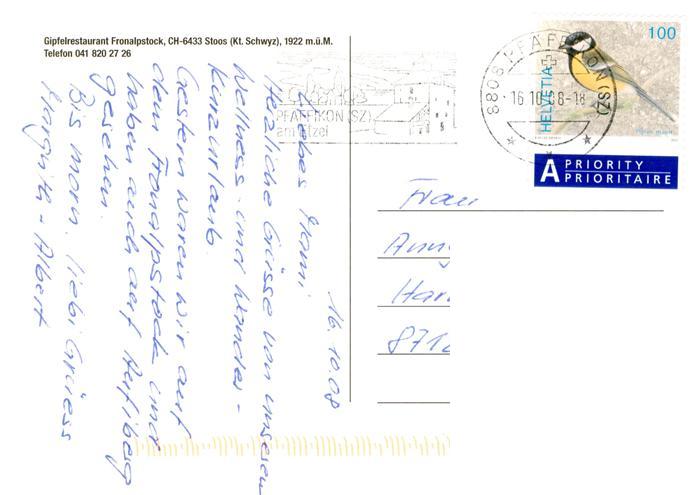 Gipfelrestaurant Fronalpstock, CH-6433 Stoos (Kt. Schwyz), 1922 m.ü.M.
Telefon 041 820 27 26
100
HELVETIA
8808 PFÄFFIKON (SZ)
16.10.08-18
PFÄFFIKON (SZ)
am Etzel
A PRIORITY
PRIORITAIRE
16.10.08
Liebes Mami
Herzliche Grüsse von unseren
Wellness- und Wander-
kurzurlaub.
Gestern waren wir auf
dem Fronalpstock und
haben auch auf Huftiberg
gesehen.
Bis morn, liebi Grüess
Margrith + Albert
Frau